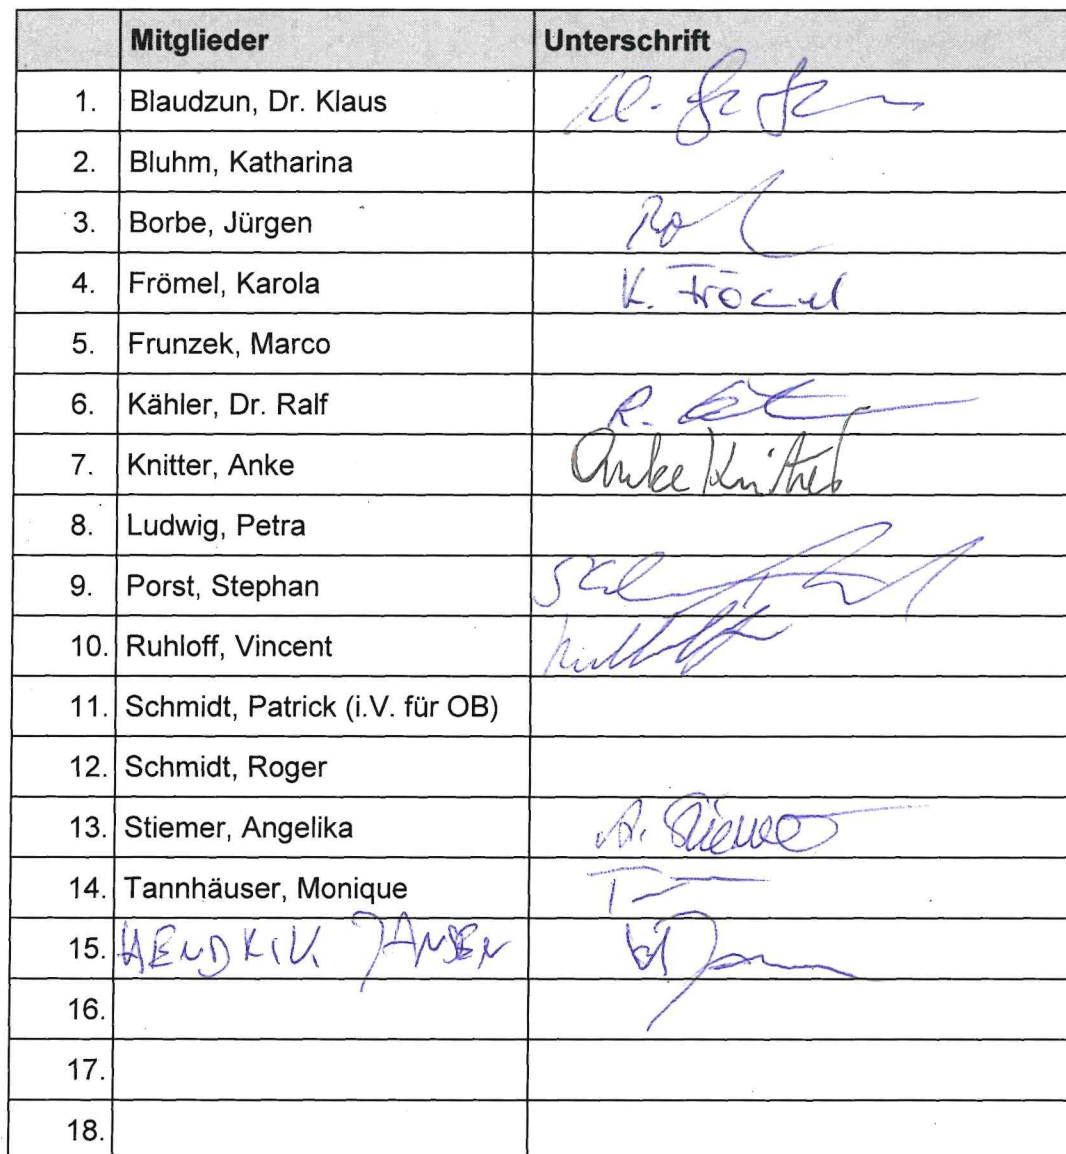 Mitglieder Unterschrift
1. Blaudzun, Dr. Klaus
2. Bluhm, Katharina
3. Borbe, Jürgen
4. Frömel, Karola K. Frömel
5. Frunzek, Marco
6. Kähler, Dr. Ralf R.
7. Knitter, Anke Anke Knitter
8. Ludwig, Petra
9. Porst, Stephan
10. Ruhloff, Vincent Ruhloff
11. Schmidt, Patrick (i.V. für OB)
12. Schmidt, Roger
13. Stiemer, Angelika A. Stiemer
14. Tannhäuser, Monique
15. HENDRIK JANSEN
16.
17.
18.